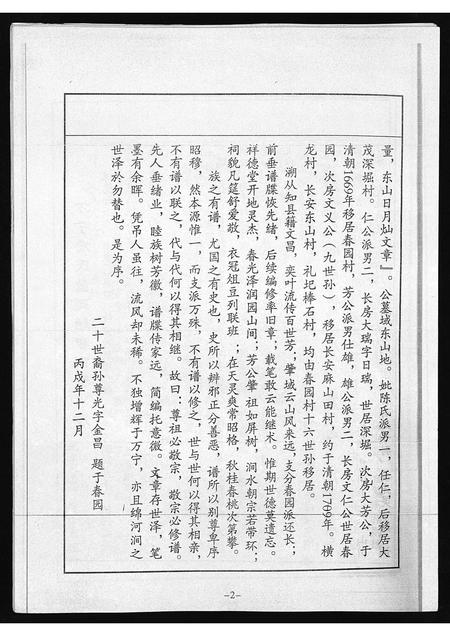 量，东山日月灿文章』。公墓域东山地。妣陈氏派男一，任仁，后移居大
茂深堀村。仁公派男二，长房大瑞字日瑞，世居深堀。次房大芳公，于
清朝1669年移居春园村，芳公派男仕雄，雄公派男二，长房文仁公世居春
园，次房文义公（九世孙），移居长安麻山田村，约于清朝1709年。横
龙村，长安东山村，礼圯棒石村，均由春园村十六世孙移居。
溯从知县籍文昌，奕叶流传百世芳；肇城云山风来远，支分春园派还长；
前垂谱牒恢先绪，后续编修率旧章，载笔敢云能继术。惟期世德莫遗忘。
祥德堂开地灵杰，春光泽润园山间；芳公肇祖如屏树，涧水朝宗若带环；
祠貌凡筵舒爱敬，衣冠俎豆列联班；在天灵爽常昭格，秋桂春桃次第攀。
族之有谱，尤国之有史也，史所以辨邪正分善恶，谱所以别尊卑序
昭穆，然本源惟一，而支派万殊，不有谱以修之，世与世何以得其相亲，
不有谱以联之，代与代何以得其相继。故曰：尊祖必敬宗，敬宗必修谱。
先人垂绪业，睦族树芳徽，谱牒传家远，简编托意微。文章存世泽，笔
墨有余晖。凭吊人虽往，流风却未稀。不独增辉于万宁，亦且绵河涧之
世泽於勿替也。是为序。
二十世裔孙尊光字金昌 题于春园
丙戌年十二月
-2-